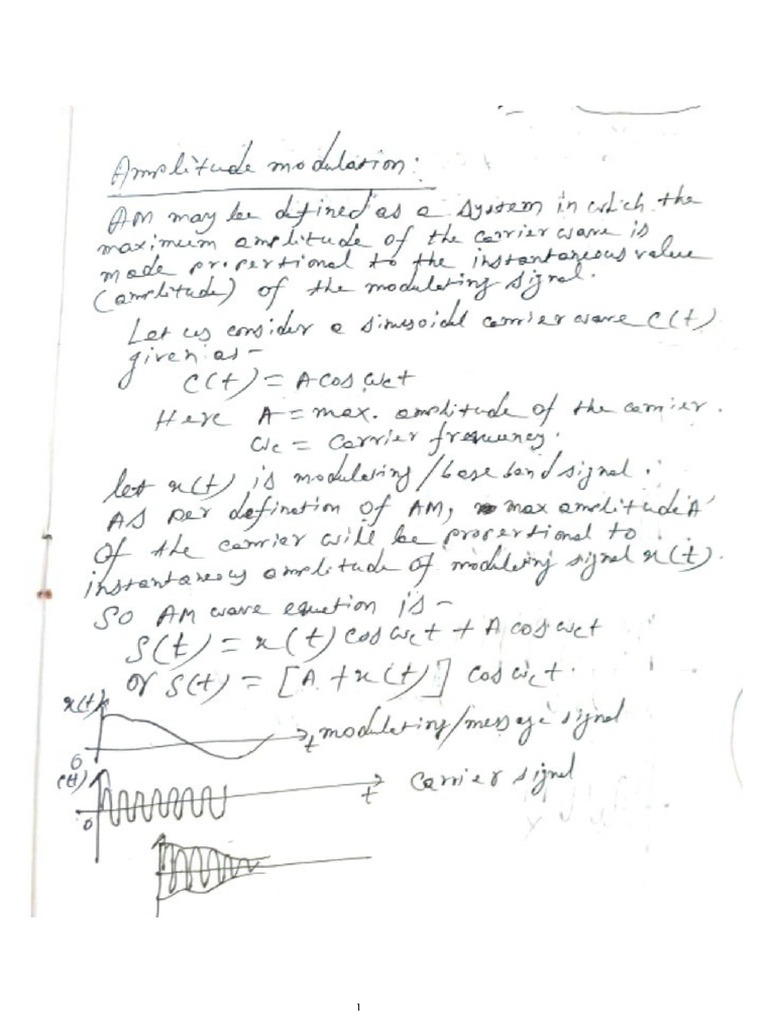 Amplitude modulation:
AM may be defined as a system in which the
maximum amplitude of the carrier wave is
made propertional to the instantaneous value
(amplitude) of the modulating signal.
Let us consider a sinusoidal carrier wave c(t)
given as -
c(t) = A cos ωct
Here A = max. amplitude of the carrier.
ωc = Carrier frequency.
let x(t) is modulating / base band signal.
AS per defination of AM, max amplitude 'A'
of the carrier will be propertional to
instantaneous amplitude of moduleing signal x(t).
SO AM wave equetion is -
S(t) = x(t) cos ωct + A cos ωct
or S(t) = [A + x(t)] cos ωct.
x(t)
0 t modulating/message signal
c(t) carrier signal
0 t
1